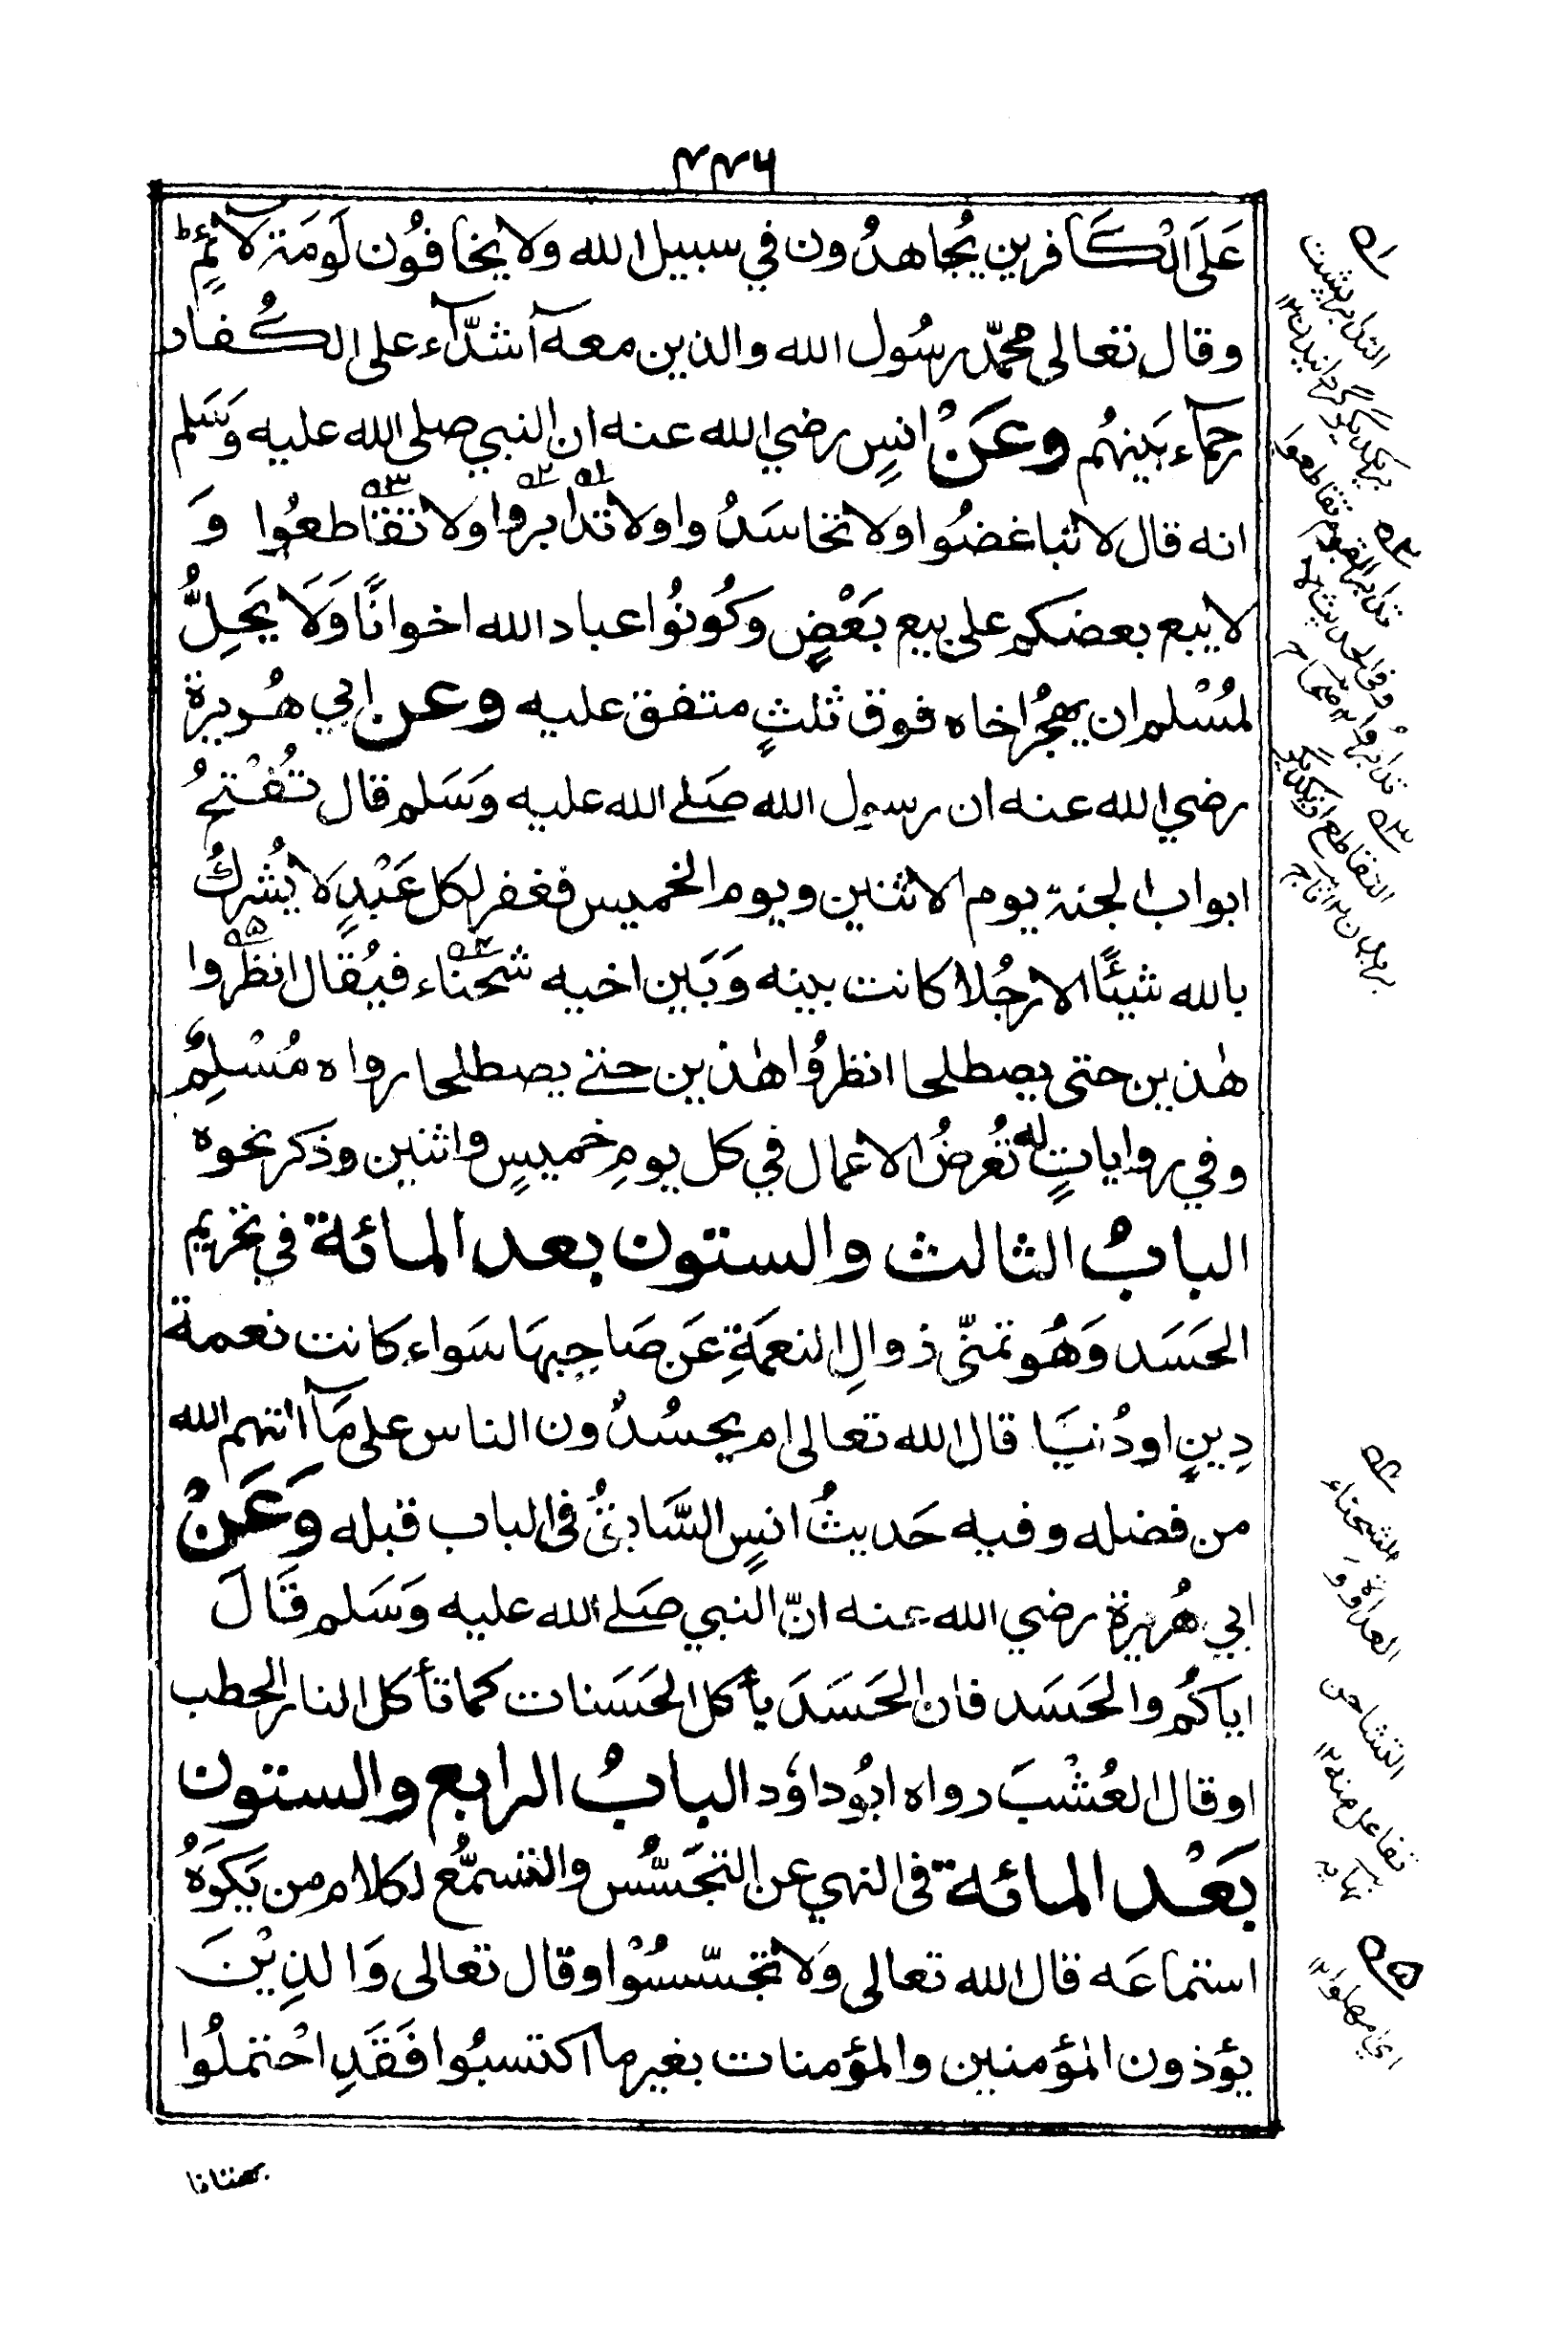 ۴۴۶
عَلَى الْكَافرين يُجاهدُون في سبيل الله ولا يخافُون لَومَة لائمٍ ط
وقال تعالى محمّد رسُول الله والذين معهٓ اَشدّآء على الكُفار
رحمآء بَينهُم وعَنْ انسٍ رضي الله عنه ان النبي صلى الله عليه وَسَلم
انه قال لا تباغضُوا ولا تحاسَدُوا ولا تدابروا ولا تقاطعُوا وَ
لا يبع بعضكم على بيع بَعْضٍ وكُونُوا عباد الله اخوانًا وَلَا يَحِلُّ
لمُسْلم ان يهجُر اخاه فوق ثلثٍ متفق عليه وعن ابي هُريرة
رضي الله عنه ان رسول الله صَلے الله عليه وَسَلم قال تُفْتحُ
ابواب الجنة يوم الاثنين ويوم الخميس فغفر لكل عَبْدٍ لا يُشركُ
بالله شيئًا الا رجُلا كانت بينه وَبَين اخيه شحناء فيُقال انظروا
هٰذين حتى يصطلحا انظرُوا هٰذين حتے يصطلحا رواه مُسْلِمٌ
وفي رواياتٍ له تُعرضُ الاعمال في كل يومِ خميسٍ واثنين وذكر نحوه
البابُ الثالث والستون بعد المائة في تحريم
الحَسَد وَهُو تمنّي زوالِ النعمَةِ عَن صَاحِبهَا سَواء كانت نعمة
دِينٍ او دُنيَا قال الله تعالى ام يحسُدُون الناس على مَآ اٰتٰهم الله
من فضله وفيه حَديثُ انسٍ السَّابقُ فى الباب قبله وَعَنْ
ابي هُريرة رضي الله عنه انّ النبي صَلے الله عليه وَسَلم قَالَ
اياكُم والحَسَد فان الحَسَدَ يأكل الحَسَنات كما تأكل النار الحطب
او قال العُشْبَ رواه ابُو داوٗد البابُ الرابع والستون
بَعْد المائة فى النهي عن التجَسُّس والتسمُّع لكلام من يَكرَهُ
استماعَه قال الله تعالى وَلا تجسّسُوْا وقال تعالى وَالذِيْنَ
يؤذون المؤمنين والمؤمنات بغير ما اكتسبُوا فَقَدِ احْتملُوا
بهتانا
۱
التدابر پشت
بریکدیگر گردانیدن ۱۲
۲
تدابر القوم تقاطعوا
وفي الحديث لا
تدابروا ۱۲ صحاح
۳
التقاطع از یکدیگر
بریدن ۱۲ تاج
۴
الشحناء
العداوة و
التشاحن
تفاعل منه ۱۲
نهايه
۵
اي امهلوا ۱۲